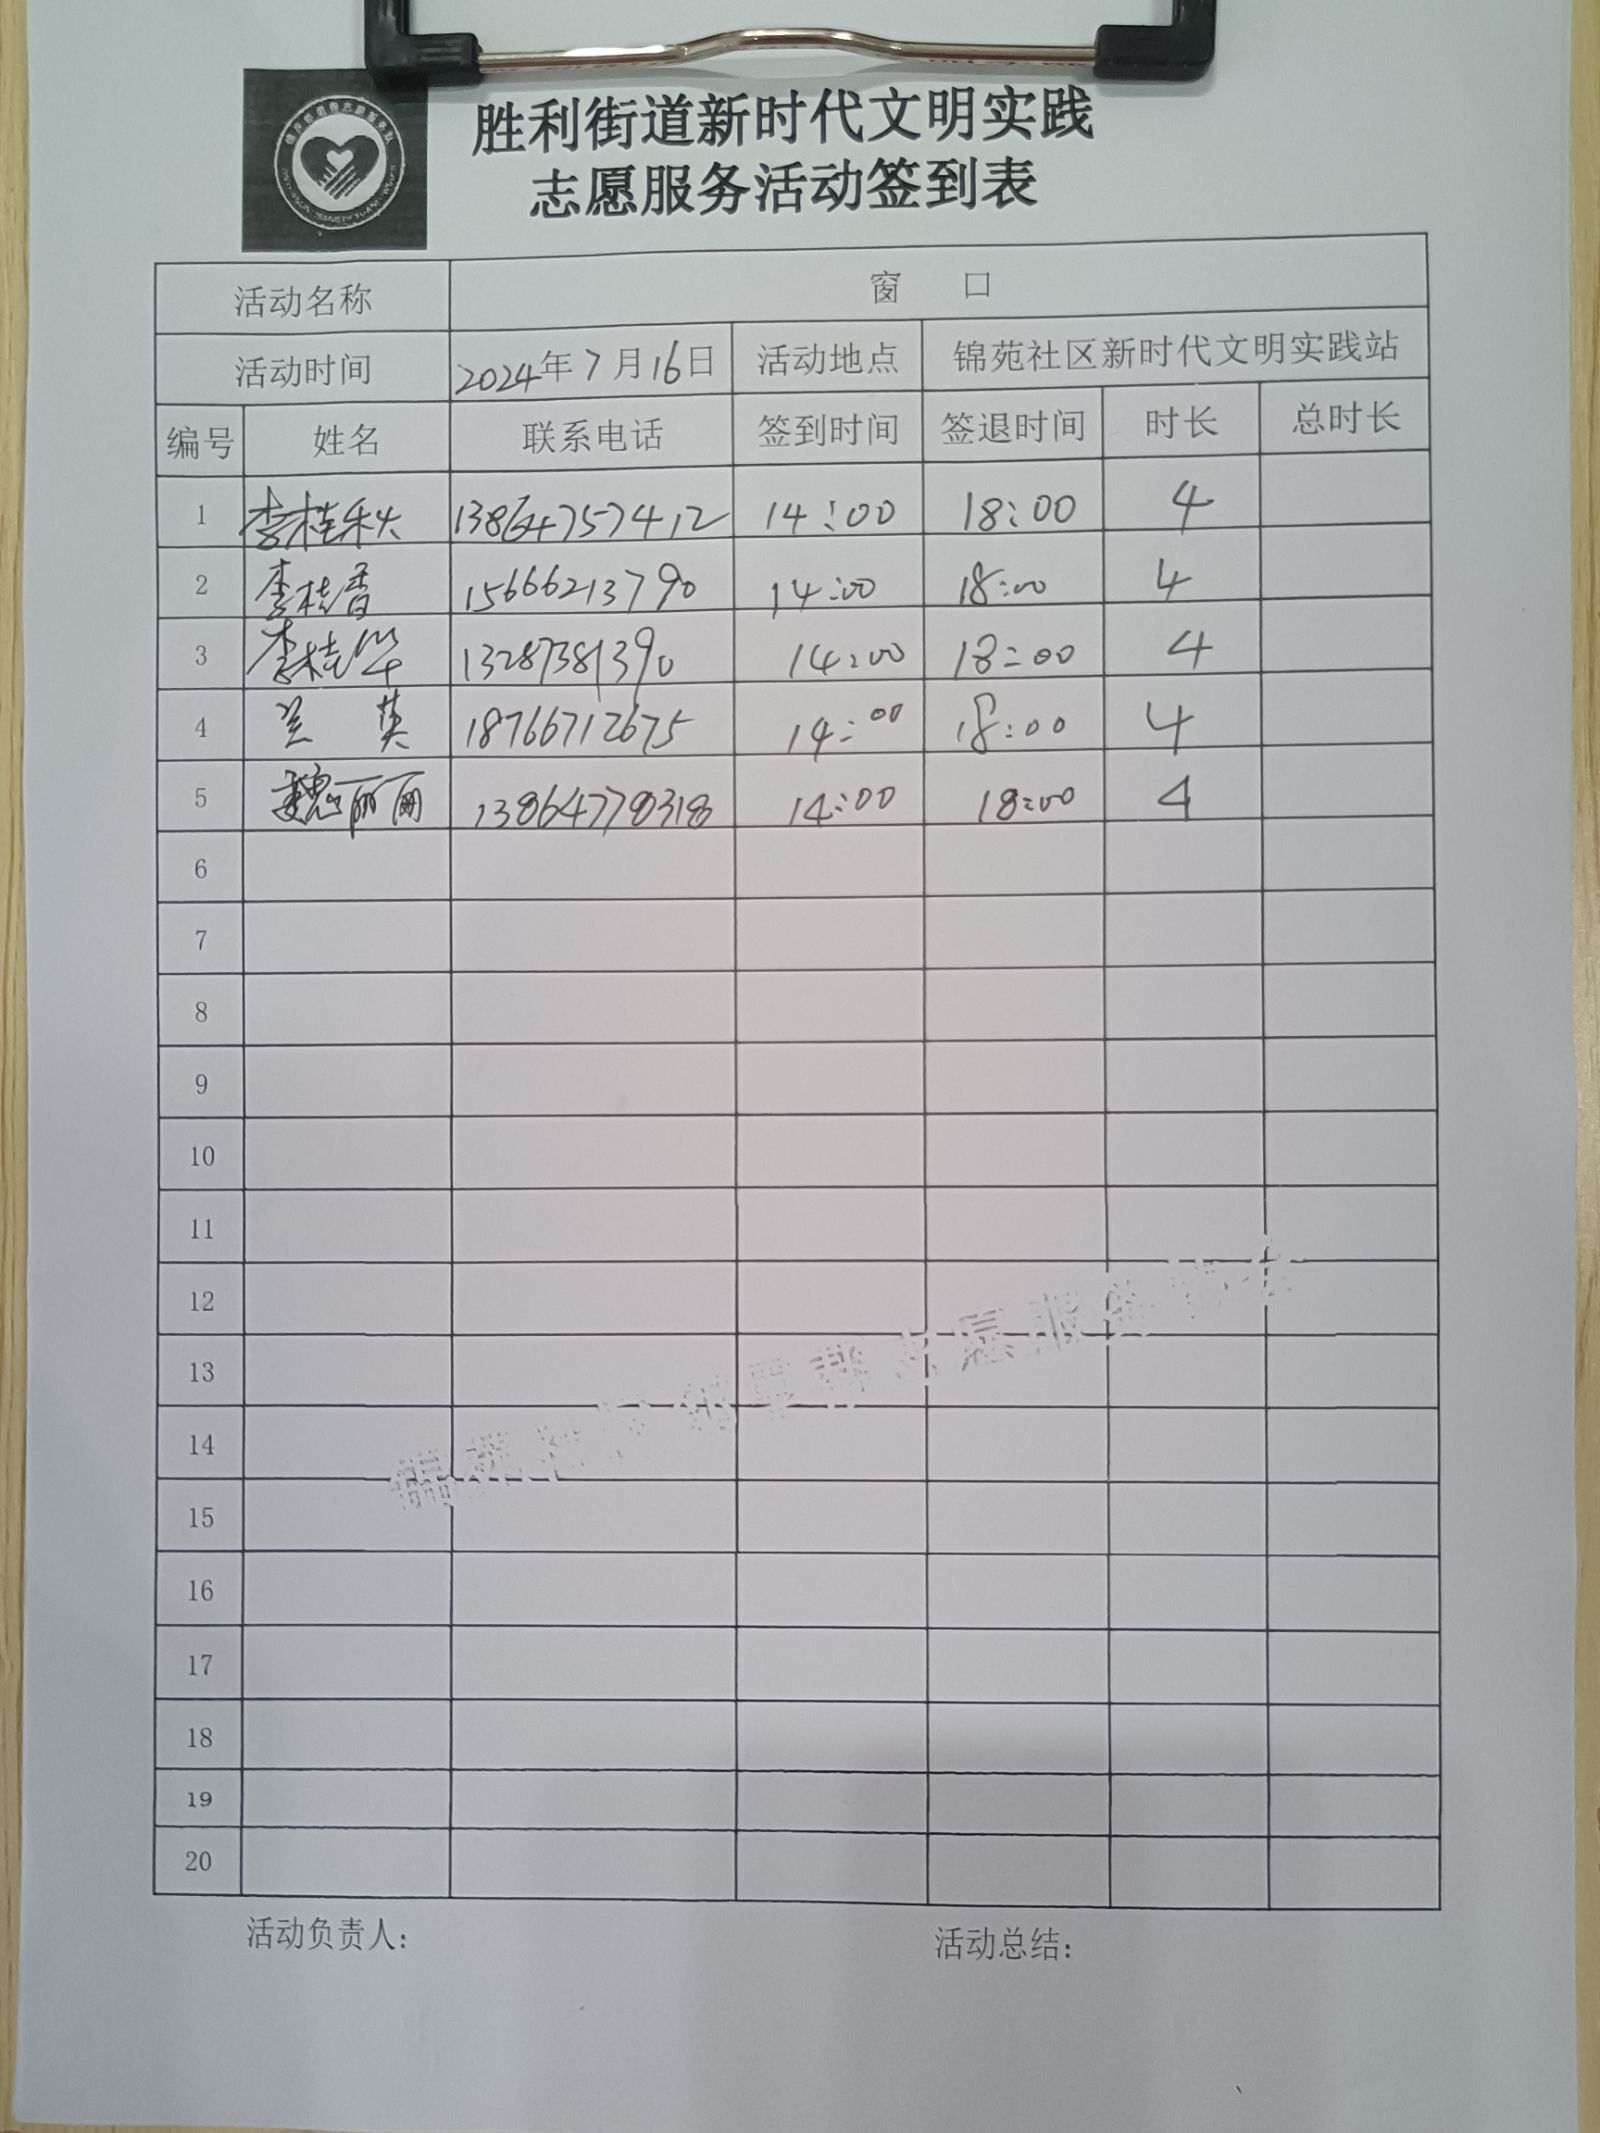 胜利街道新时代文明实践
志愿服务活动签到表
活动名称 窗 口
活动时间 2024年7月16日 活动地点 锦苑社区新时代文明实践站
编号 姓名 联系电话 签到时间 签退时间 时长 总时长
1 李桂秋 13864757412 14:00 18:00 4
2 李桂香 15666213790 14:00 18:00 4
3 李桂华 13287381390 14:00 18:00 4
4 兰 英 18766712675 14:00 18:00 4
5 魏丽丽 13864778318 14:00 18:00 4
6
7
8
9
10
11
12
13
14
15
16
17
18
19
20
活动负责人: 活动总结: